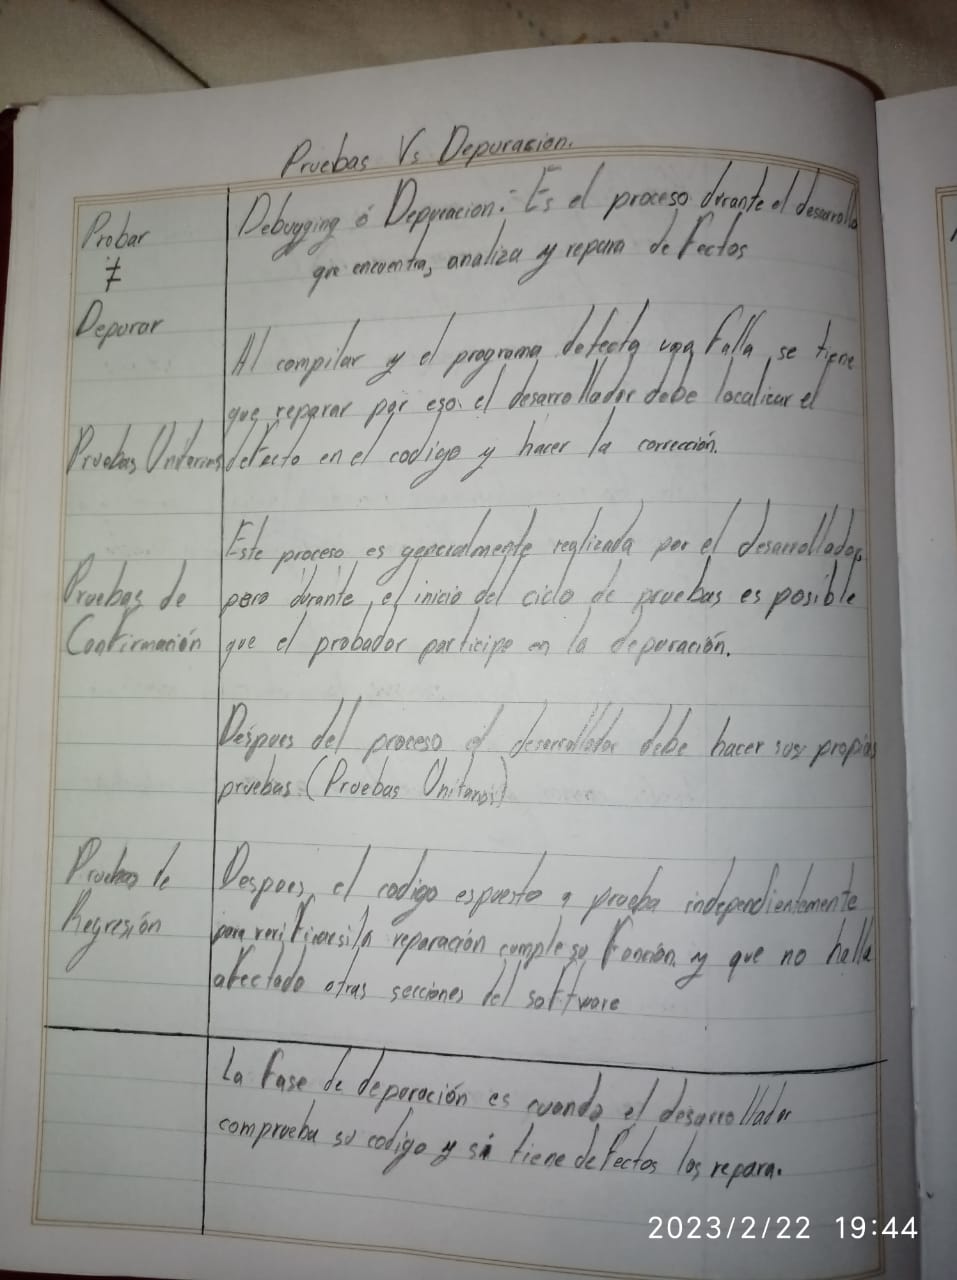 Pruebas Vs Depuración.
Probar
≠
Depurar
Debugging ó Depuracion.- Es el proceso durante el desarrollo
que encuentra, analiza y repara defectos
Al compilar y el programa detecta una falla, se tiene
que reparar por eso el desarrollador debe localizar el
Pruebas Unitarias
defecto en el codigo y hacer la corrección.
Este proceso es generalmente realizada por el desarrollador,
Pruebas de
Confirmación
pero durante el inicio del ciclo de pruebas es posible
que el probador participe en la depuración.
Despues del proceso el desarrollador debe hacer sus propias
pruebas (Pruebas Unitarias)
Pruebas de
Regresión
Despues, el codigo espuesto a prueba independientemente
para verificar si la reparación cumple su función y que no halla
afectado otras secciones del software
La fase de depuración es cuando el desarrollador
comprueba su codigo y si tiene defectos los repara.
2023/2/22 19:44